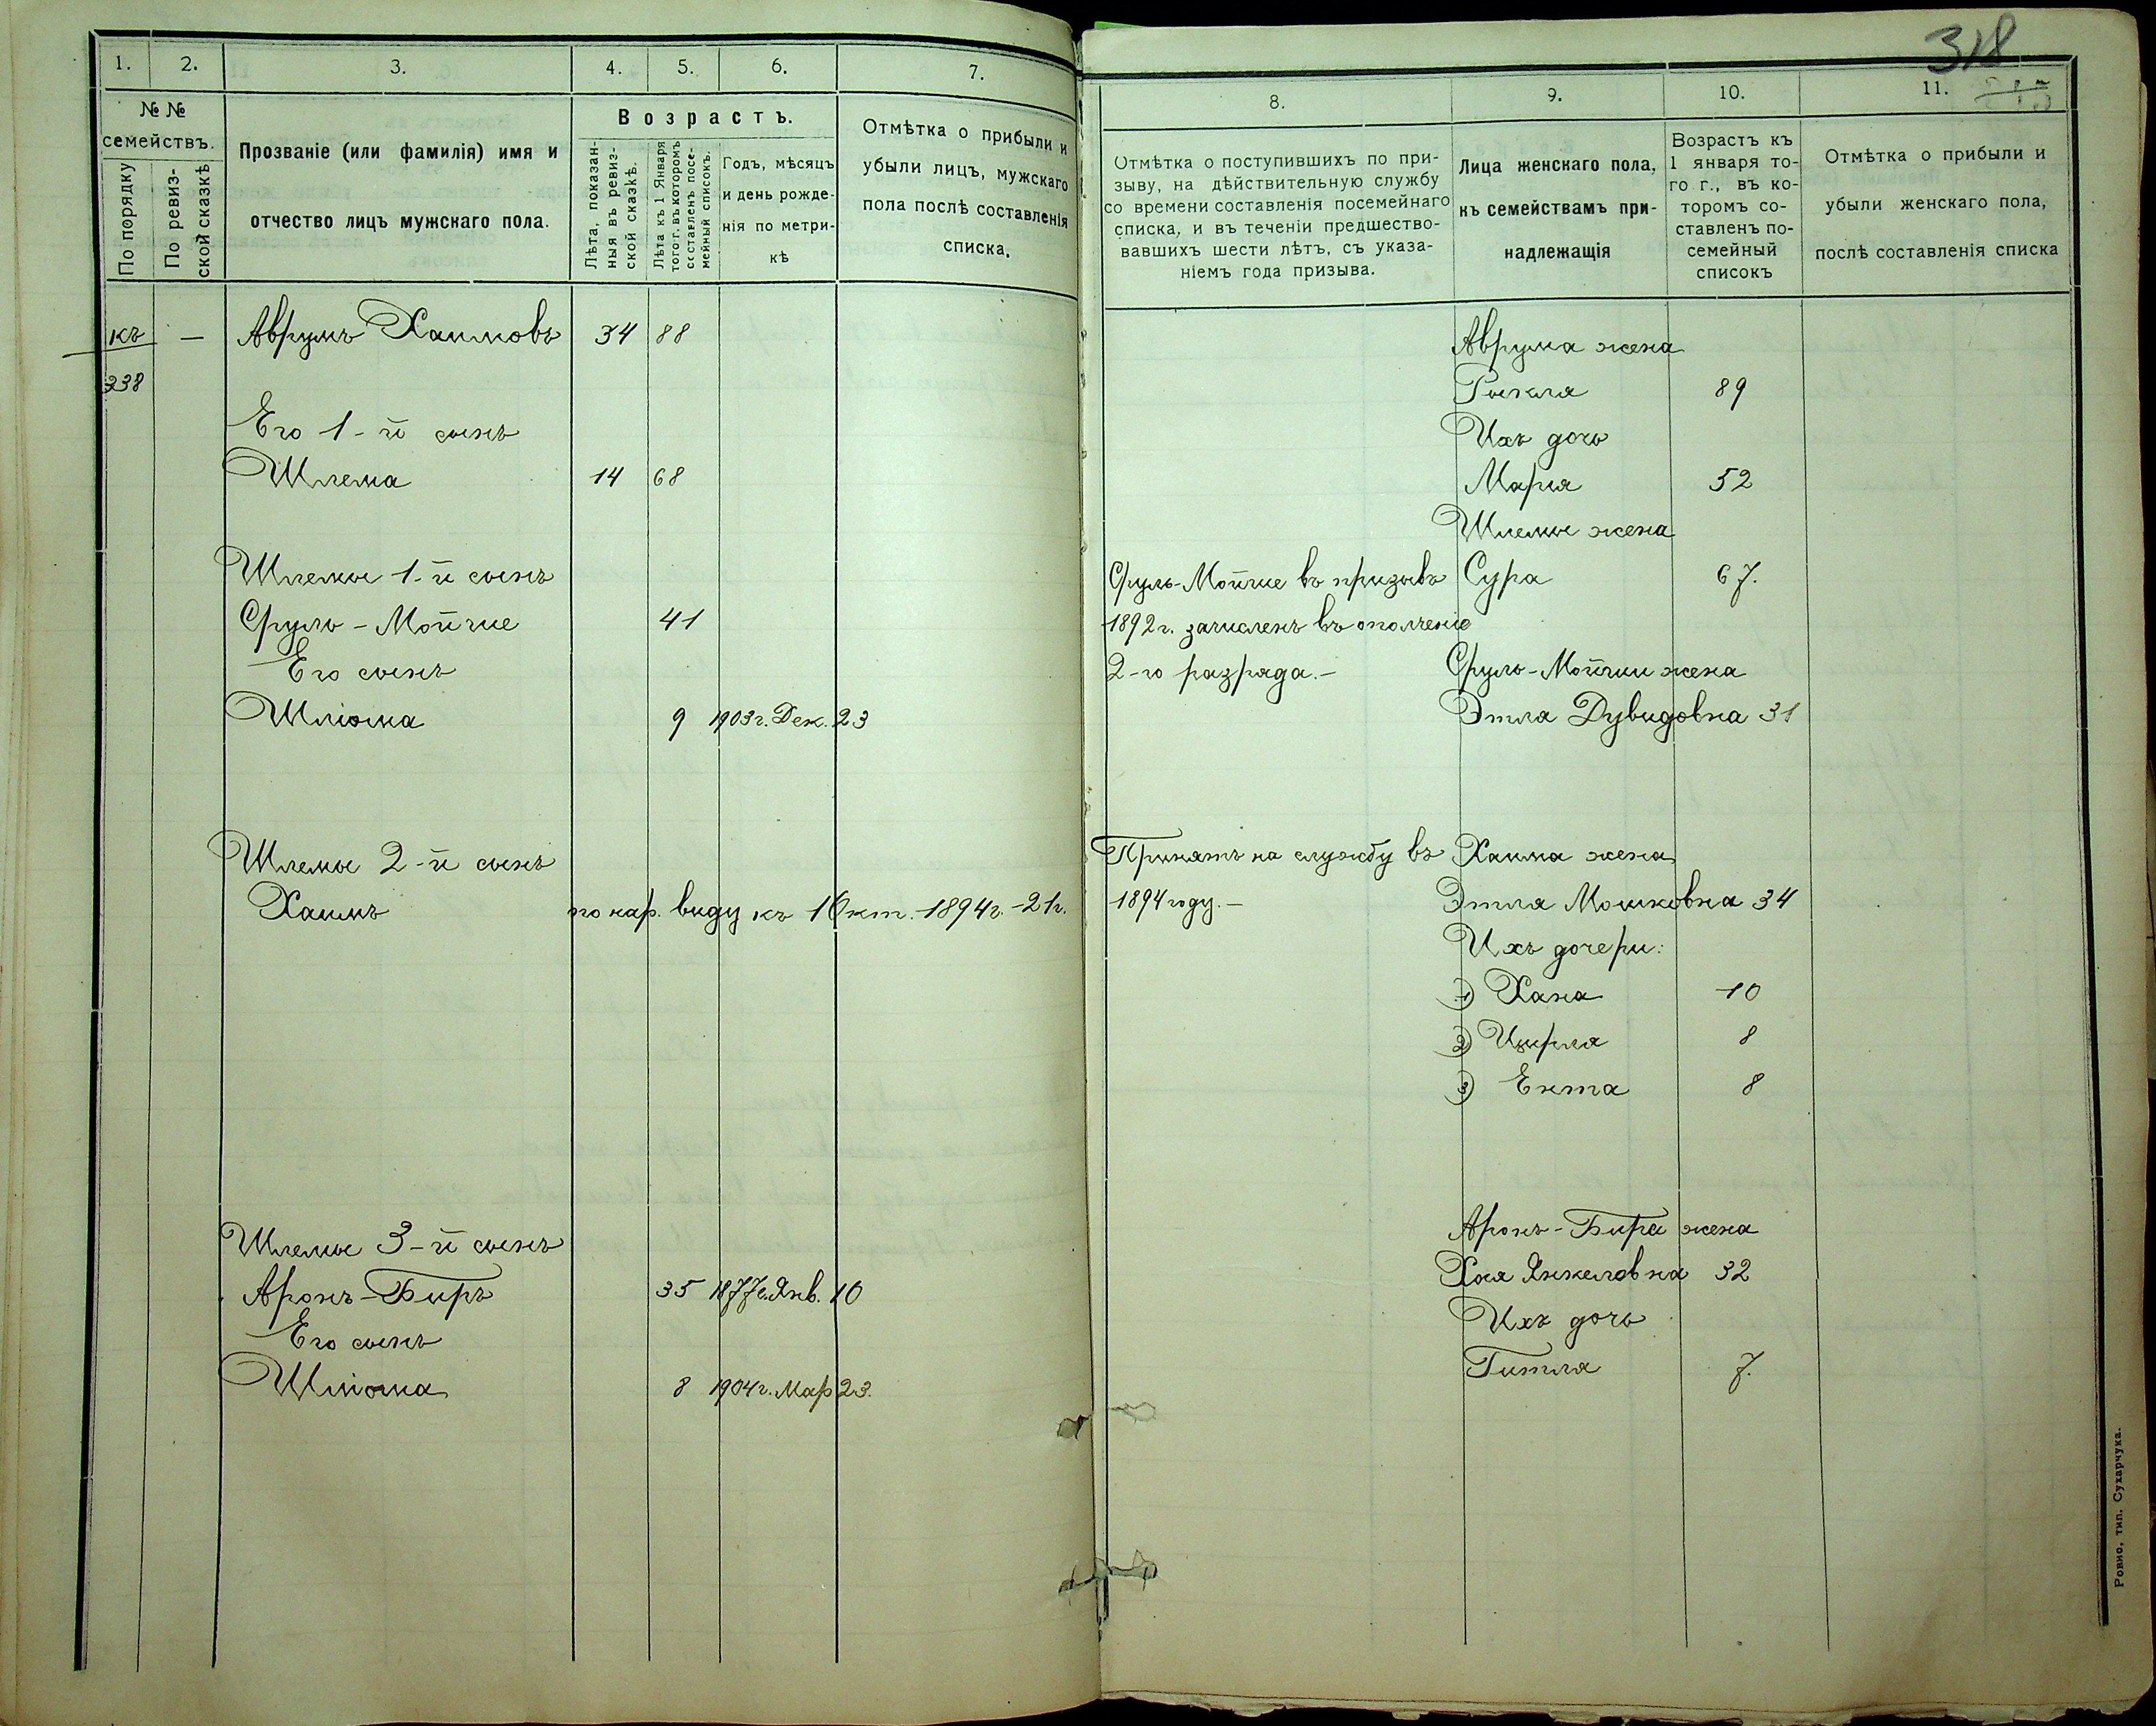 318
1. 2. 3. 4. 5. 6. 7.
№ № семействъ.
По порядку
По ревиз-
ской сказкѣ
Прозваніе (или фамилія) имя и
отчество лицъ мужскаго пола.
Возрастъ.
Лѣта, показан-
ныя въ ревиз-
ской сказкѣ.
Лѣта къ 1 Января
того г. въ которомъ
составленъ посе-
мейный списокъ.
Годъ, мѣсяцъ
и день рожде-
нія по метри-
кѣ
Отмѣтка о прибыли и
убыли лицъ, мужскаго
пола послѣ составленія
списка.
къ — Аврумъ Хаимовъ 34 88
238
Его 1-й сынъ
Шлема 14 68
Шлемы 1-й сынъ
Сруль-Мойше 41
Его сынъ
Шліома 9 1903 г. Дек. 23
Шлемы 2-й сынъ
Хаимъ по нар. виду къ 1 Окт. 1894 г. - 21 г.
Шлемы 3-й сынъ
Аронъ-Биръ 35 1877 г. Янв. 10
Его сынъ
Шліома 8 1904 г. Мар 23.
8. 9. 10. 11.
Отмѣтка о поступившихъ по при-
зыву, на дѣйствительную службу
со времени составленія посемейнаго
списка, и въ теченіи предшество-
вавшихъ шести лѣтъ, съ указа-
ніемъ года призыва.
Лица женскаго пола,
къ семействамъ при-
надлежащія
Возрастъ къ
1 января то-
го г., въ ко-
торомъ со-
ставленъ по-
семейный
списокъ
Отмѣтка о прибыли и
убыли женскаго пола,
послѣ составленія списка
Аврума жена
Рыкля 89
Ихъ дочь
Марія 52
Шлемы жена
Сруль-Мойше въ призывъ Сура 67.
1892 г. зачисленъ въ ополченіе
2-го разряда.— Сруль-Мойши жена
Этля Дувидовна 31
Принятъ на службу въ Хаима жена
1894 году.— Этля Мошковна 34
Ихъ дочери:
1) Хана 10
2) Цирля 8
3) Ента 8
Аронъ-Бира жена
Хая Янкеловна 32
Ихъ дочь
Гитля 7.
Ровно, тип. Сухарчука.